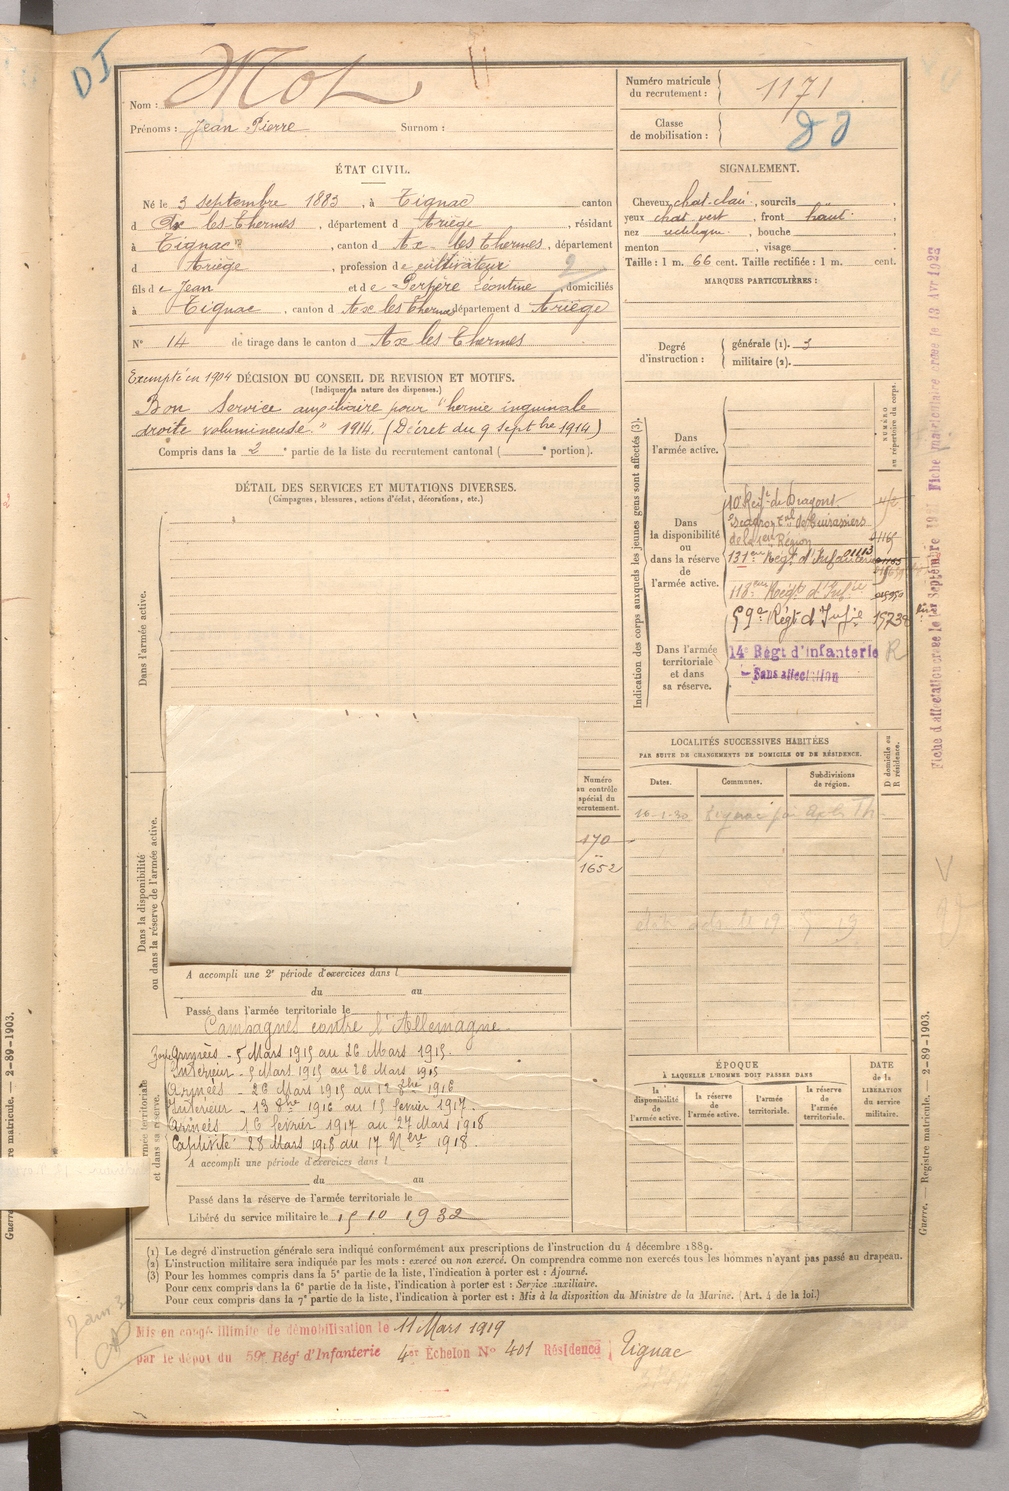 DI
Nom : Mot
Prénoms : Jean Pierre Surnom :
Numéro matricule du recrutement : 1171
Classe de mobilisation :
ÉTAT CIVIL.
Né le 3 septembre 1883, à Tignac canton
d Ax les-Thermes, département d Ariège, résidant
à Tignac, canton d Ax-les Thermes, département
d Ariège, profession de cultivateur
fils de Jean et de Léontine, domiciliés
à Tignac, canton d Ax les Thermes département d Ariège
N° 14 de tirage dans le canton d Ax les Thermes
SIGNALEMENT.
Cheveux chat-clair, sourcils "
yeux chat vert, front haut
nez rectiligne, bouche
menton , visage
Taille : 1 m. 66 cent. Taille rectifiée : 1 m. cent.
MARQUES PARTICULIÈRES :
Degré d'instruction : générale (1). 3
militaire (2).
Exempté en 1904 DÉCISION DU CONSEIL DE REVISION ET MOTIFS.
(Indiquer la nature des dispenses.)
Bon Service auxiliaire pour "hernie inguinale
droite volumineuse" 1914. (Décret du 9 Septbre 1914)
Compris dans la 2e partie de la liste du recrutement cantonal ( e portion).
DÉTAIL DES SERVICES ET MUTATIONS DIVERSES.
(Campagnes, blessures, actions d'éclat, décorations, etc.)
Dans l'armée active.
Dans la disponibilité
ou dans la réserve de l'armée active.
Numéro
au contrôle
spécial du
recrutement.
170
1652
A accompli une 2e période d'exercices dans l
du au
Passé dans l'armée territoriale le
Campagnes contre l'Allemagne
Armées - 5 Mars 1915 au 26 Mars 1915.
Intérieur - 5 Mars 1915 au 20 Mars 1915
Armées - 26 Mars 1915 au 12 8bre 1916
Intérieur - 13 8bre 1916 au 15 février 1917.
Armées 16 février 1917 au 27 Mars 1918
Captivité 28 Mars 1918 au 17 Nbre 1918.
A accompli une période d'exercices dans l
du au
Passé dans la réserve de l'armée territoriale le
Libéré du service militaire le 15 10 1932
rmée territoriale
et dans sa réserve.
Indication des corps auxquels les jeunes gens sont affectés (3).
NUMÉRO
au répertoire du corps.
Dans
l'armée active.
Dans
la disponibilité
ou
dans la réserve
de
l'armée active.
10 Régt de Dragons
de Cuirassiers
de la Région
131ème Régt d'Infanterie
118ème Régt d'Infie
59e Régt d'Infie
Dans l'armée
territoriale
et dans
sa réserve.
14e Régt d'infanterie
Sans affectation
R
LOCALITÉS SUCCESSIVES HABITÉES
PAR SUITE DE CHANGEMENTS DE DOMICILE OU DE RÉSIDENCE.
D domicile ou
R résidence.
Dates. Communes. Subdivisions de région.
16-1-30
ÉPOQUE
À LAQUELLE L'HOMME DOIT PASSER DANS
la disponibilité de l'armée active.
la réserve de l'armée active.
l'armée territoriale.
la réserve de l'armée territoriale.
DATE de la LIBÉRATION du service militaire.
(1) Le degré d'instruction générale sera indiqué conformément aux prescriptions de l'instruction du 4 décembre 1889.
(2) L'instruction militaire sera indiquée par les mots : exercé ou non exercé. On comprendra comme non exercés tous les hommes n'ayant pas passé au drapeau.
(3) Pour les hommes compris dans la 5e partie de la liste, l'indication à porter est : Ajourné.
Pour ceux compris dans la 6e partie de la liste, l'indication à porter est : Service auxiliaire.
Pour ceux compris dans la 7e partie de la liste, l'indication à porter est : Mis à la disposition du Ministre de la Marine. (Art. 4 de la loi.)
Mis en congé illimité de démobilisation le 11 Mars 1919
par le dépôt du 59e Régt d'Infanterie 4er Échelon N° 401 Résidence Tignac
Fiche d'affectation créée le 1er Septembre Fiche matriculaire créée le 13 Avr
Guerre. — Registre matricule. — 2-89-1903.
re matricule. — 2-89-1903.
Guerre